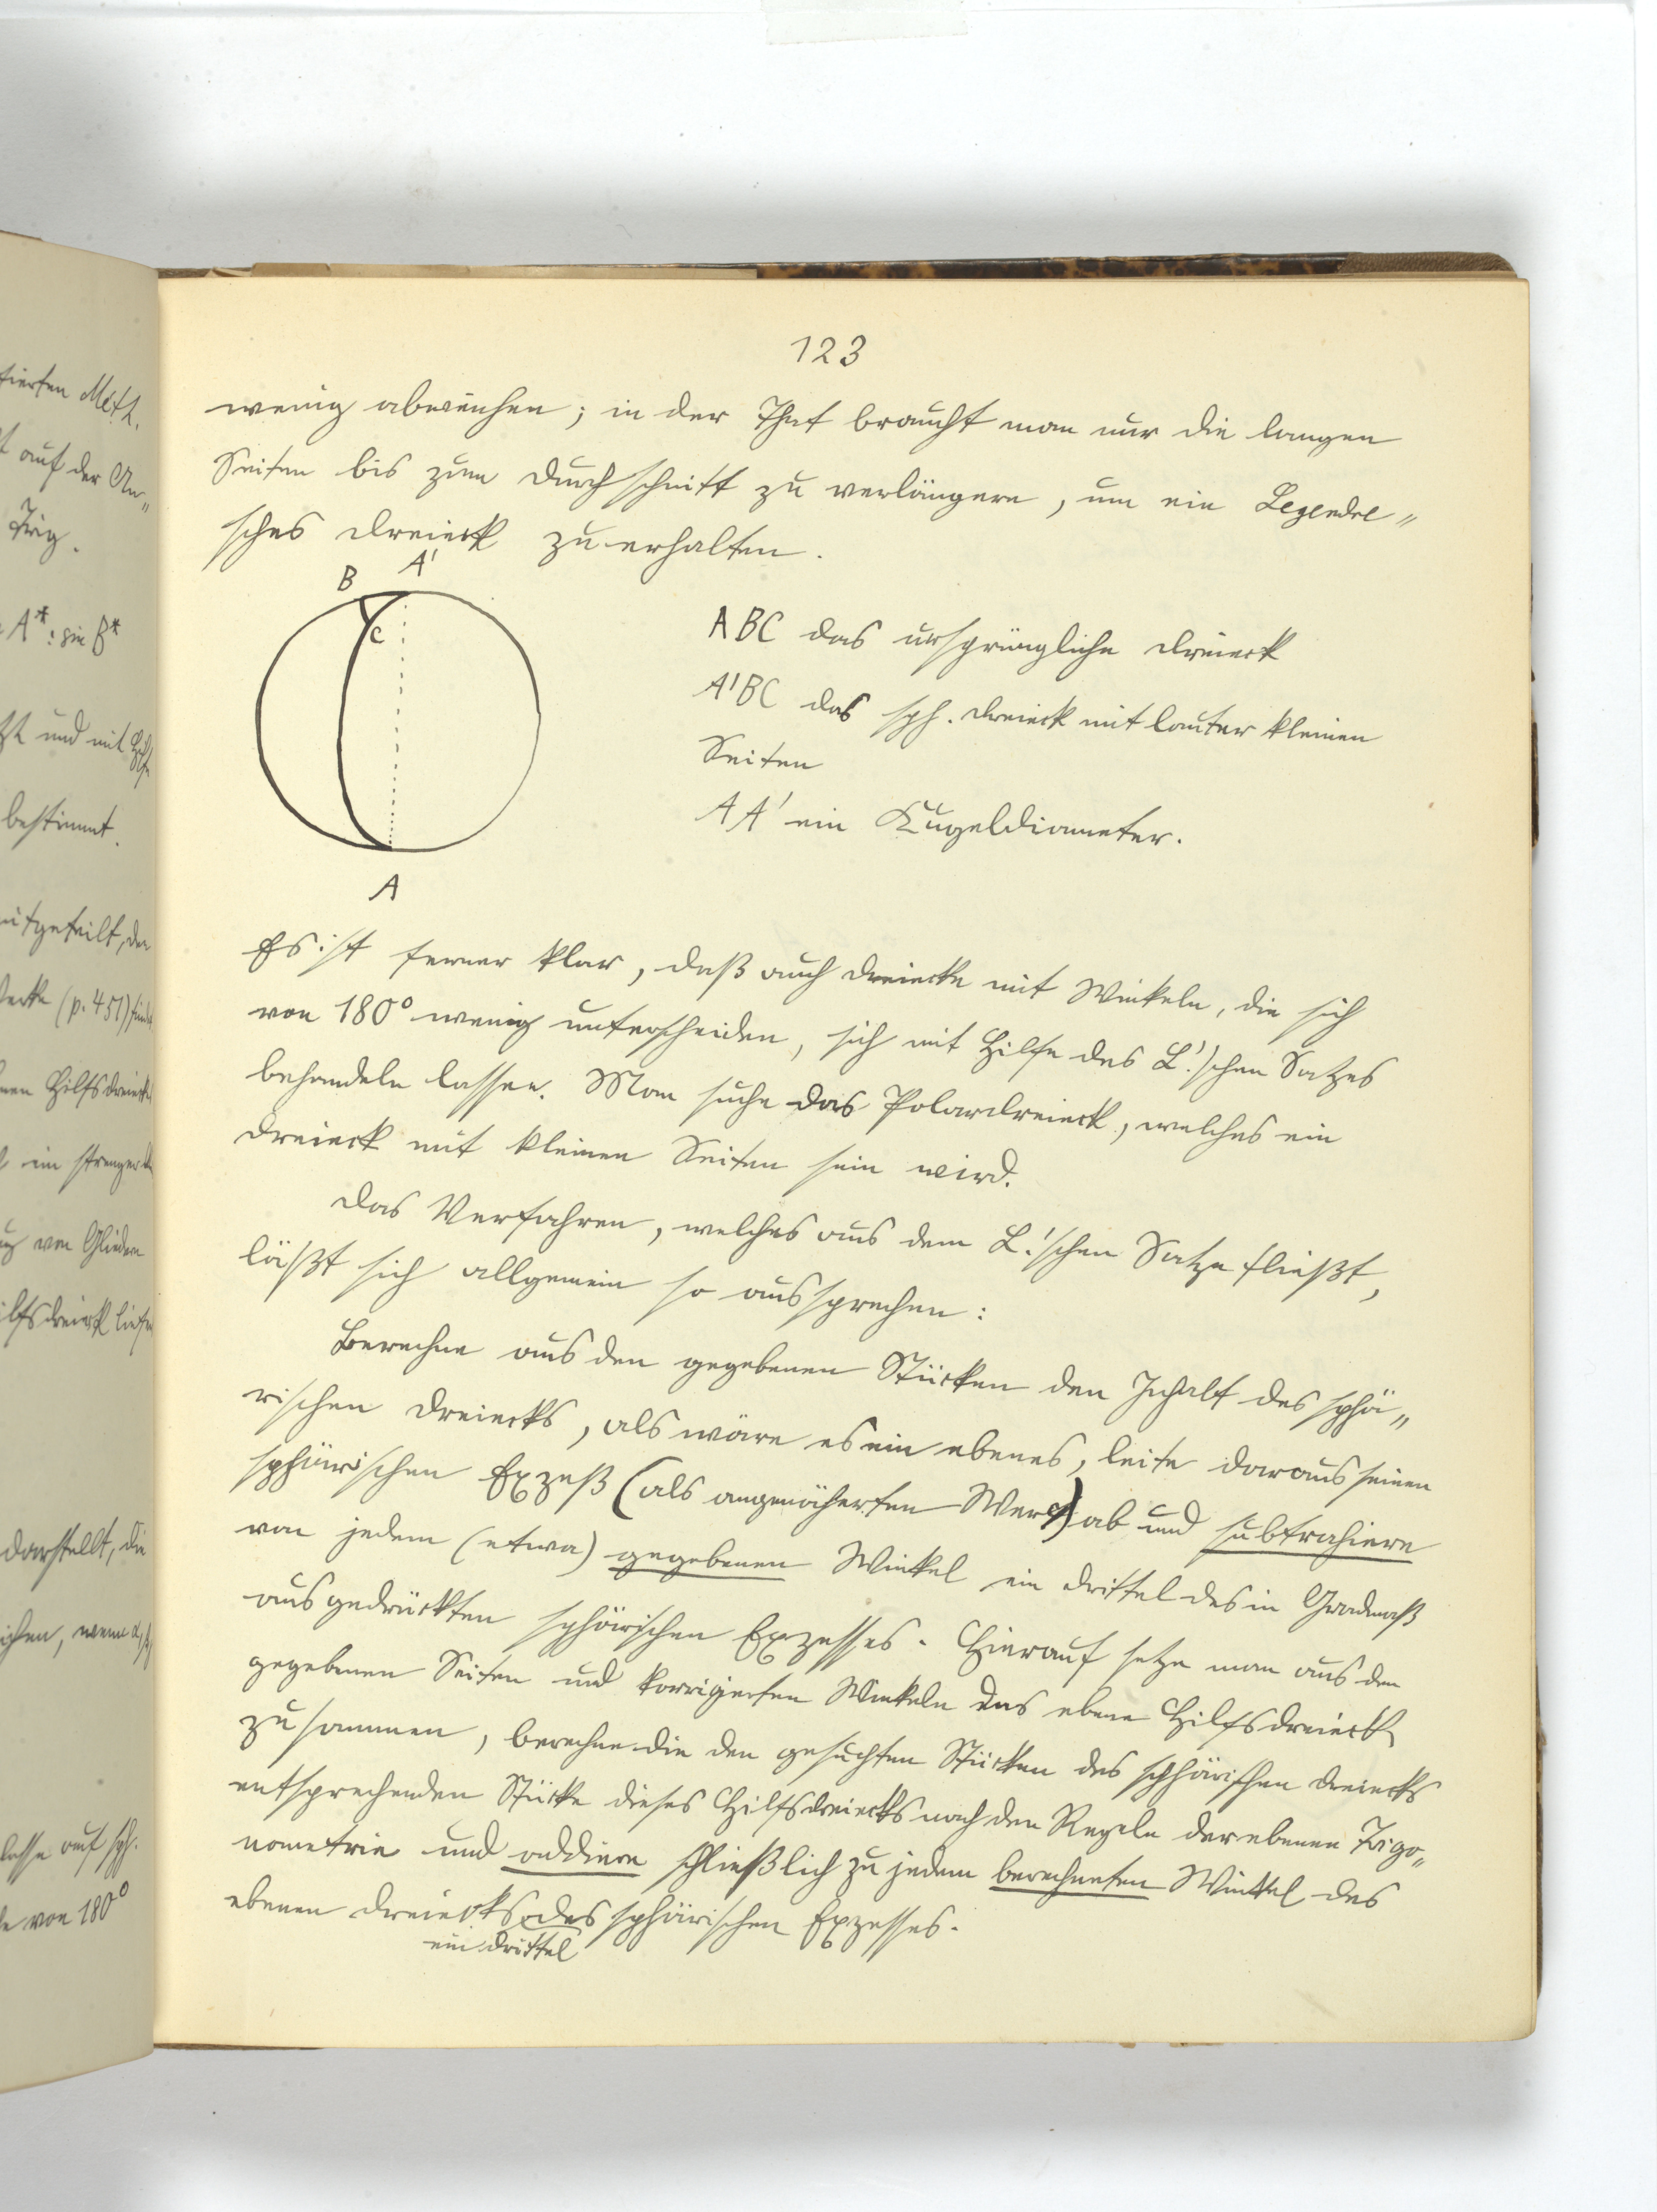 tierten Meth.
auf der An„
Trig.
A* : sin B*
und mit Hilfe
bestimmt.
mitgeteilt, der
(p. 451)
Hilfsdreiecke
ein strenger
von Gliedern
Hilfsdreieck
darstellt, die
wenn α, β,
auf sph.
von 180°
123
wenig abweichen; in der That braucht man nur die langen
Seiten bis zum Durchschnitt zu verlängern, um ein Legendre„
sches Dreieck zu erhalten.
B A'
C
A
ABC das ursprüngliche Dreieck
A'BC das sph. Dreieck mit lauter kleinen
Seiten
AA' ein Kugeldiameter.
Es ist ferner klar, daß auch Dreiecke mit Winkeln, die sich
von 180° wenig unterscheiden, sich mit Hilfe des L.'schen Satzes
behandeln lassen. Man suche das Polardreieck, welches ein
Dreieck mit kleinen Seiten sein wird.
Das Verfahren, welches aus dem L.'schen Satze fließt,
läßt sich allgemein so aussprechen:
Berechne aus den gegebenen Stücken den Inhalt des sphä„
rischen Dreiecks, als wäre es ein ebenes, leite daraus seinen
sphärischen Exzeß (als angenäherten Wert) ab und subtrahiere
von jedem (etwa) gegebenen Winkel ein Drittel des in Gradmaß
ausgedrückten sphärischen Exzesses. Hierauf setze man aus den
gegebenen Seiten und korrigierten Winkeln das ebene Hilfsdreieck
zusammen, berechne die den gesuchten Stücken des sphärischen Dreiecks
entsprechenden Stücke dieses Hilfsdreiecks nach den Regeln der ebenen Trigo„
nometrie und addiere schließlich zu jedem berechneten Winkel des
ebenen Dreiecks des sphärischen Exzesses.
ein Drittel